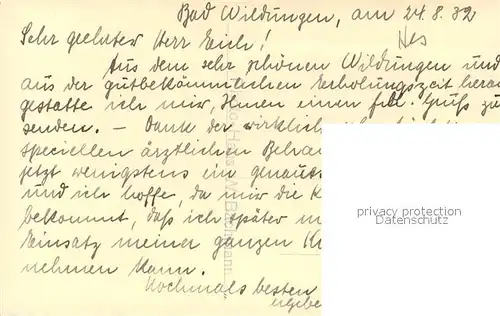 Bad Wildungen, am 24.8.32
Hes
Sehr geehrter Herr Eich!
Aus dem sehr schönen Wildungen und
aus der gutbekömmlichen Erholungszeit heraus
gestatte ich mir, Ihnen einen frdl. Gruß zu
senden. — Danke der wirklich
speciellen ärztlichen
jetzt wenigstens ein
und ich hoffe, da mir die K
bekommt, daß ich später
Einsatz meiner ganzen
nehmen kann.
Nochmals besten
privacy protection
Datenschutz